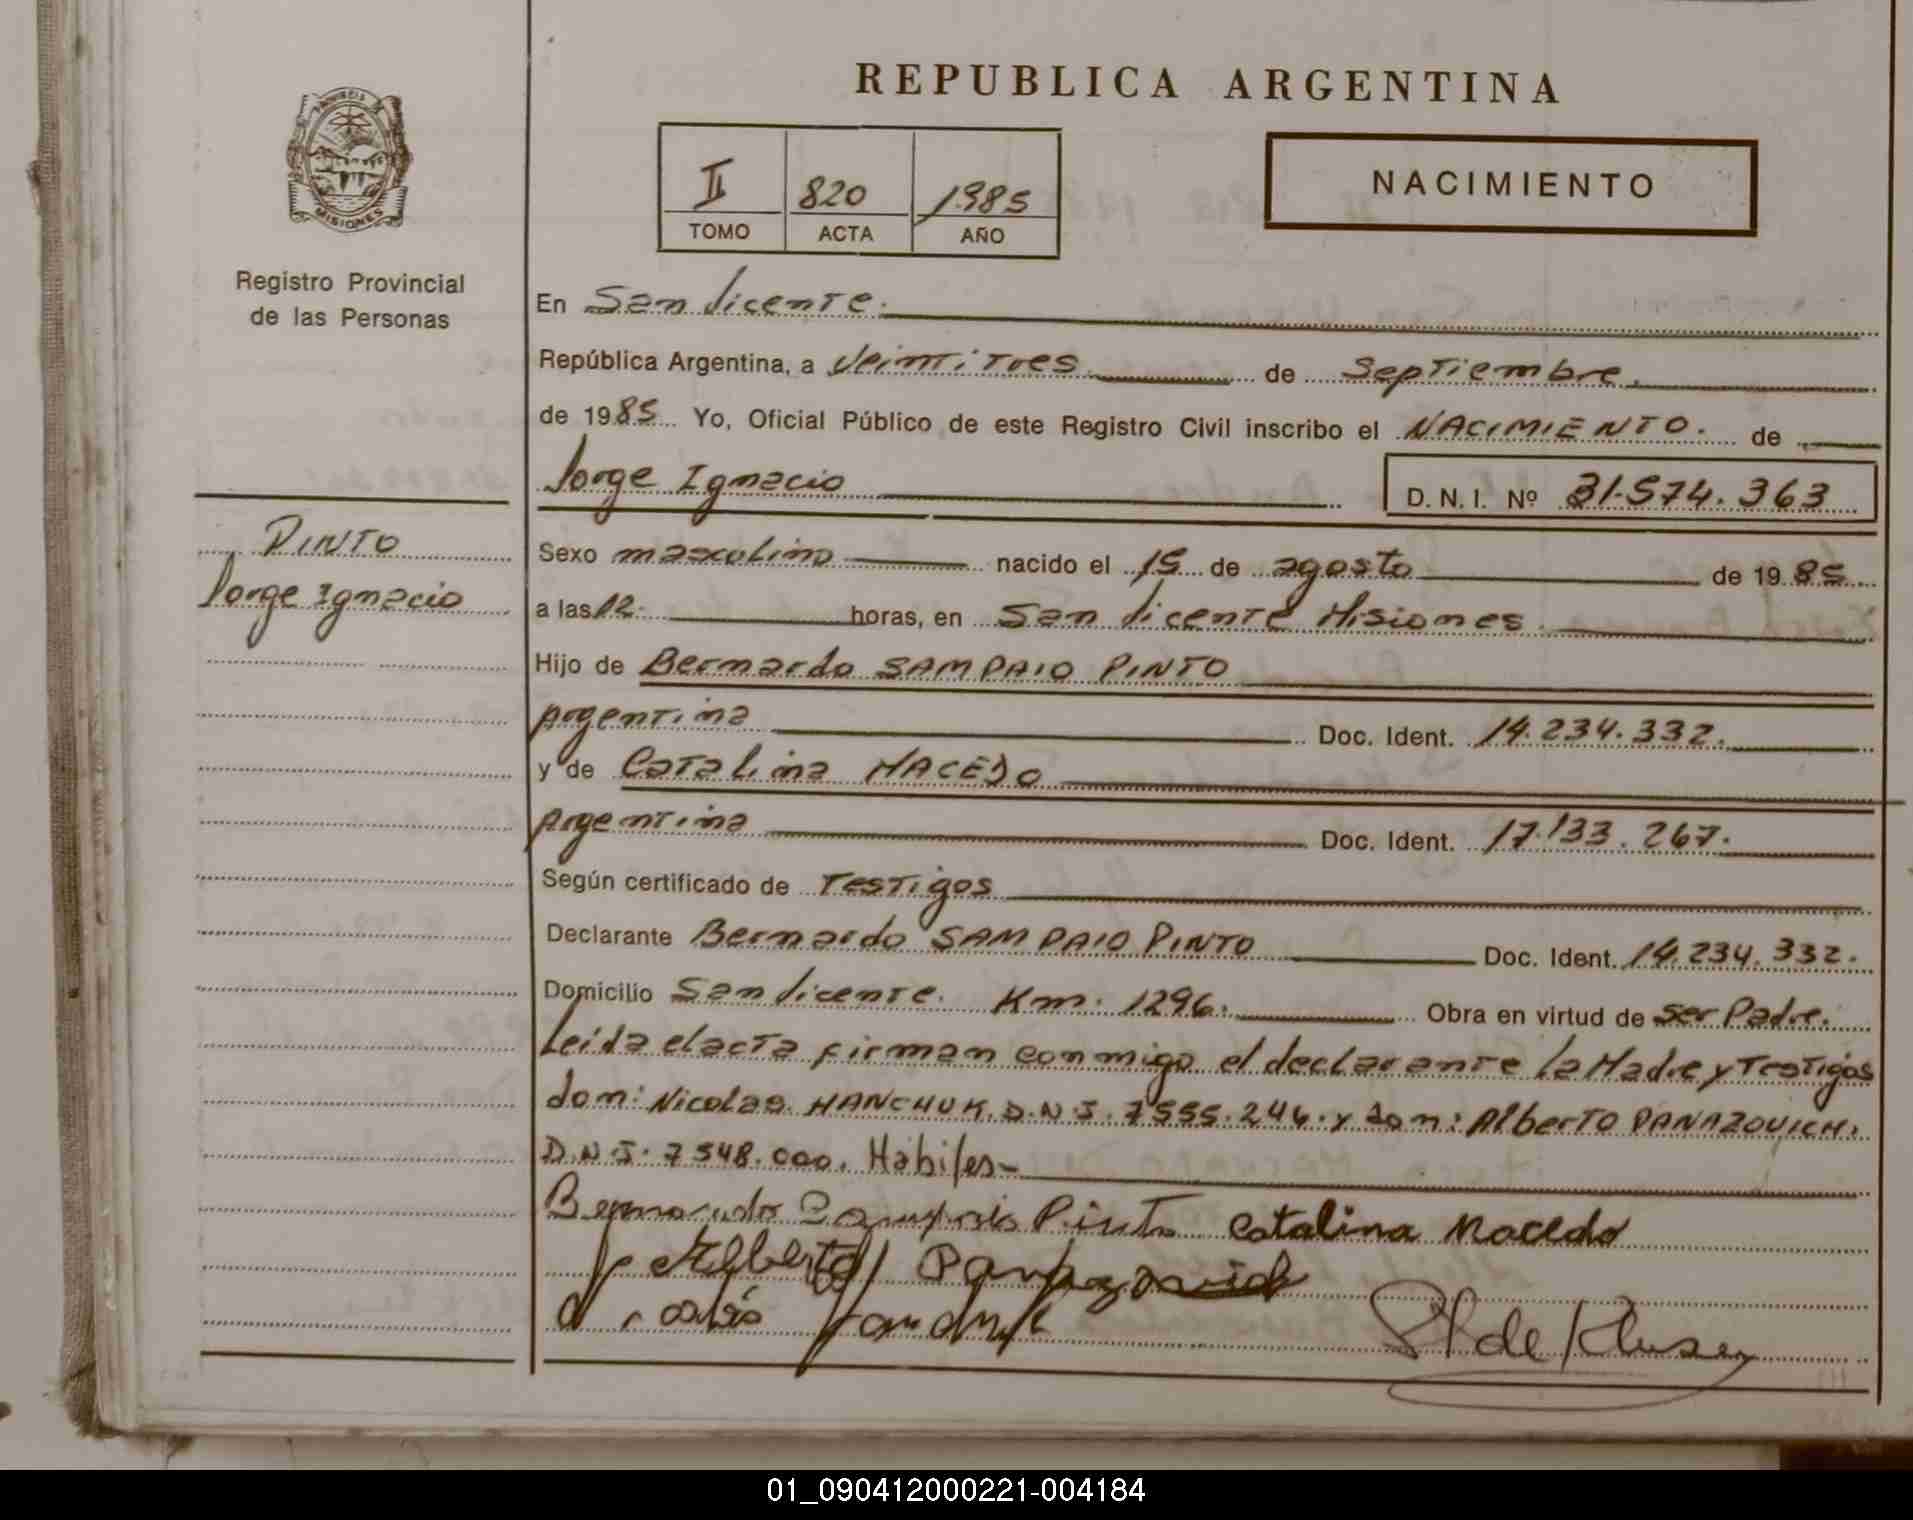 REPUBLICA ARGENTINA
PROVINCIA DE
MISIONES
Registro Provincial
de las Personas
II 820 1985
TOMO ACTA AÑO
NACIMIENTO
En San Vicente.
República Argentina, a Veintitres de Septiembre.
de 1985 Yo, Oficial Público de este Registro Civil inscribo el NACIMIENTO. de
Jorge Ignacio D. N. I. Nº 31.574.363
PINTO
Jorge Ignacio
Sexo masculino nacido el 15 de agosto de 1985
a las 12. horas, en San Vicente Misiones.
Hijo de Bernardo SAMPAIO PINTO
Argentina Doc. Ident. 14.234.332.
y de Catalina MACEDO
Argentina Doc. Ident. 17.133.267.
Según certificado de Testigos
Declarante Bernardo SAMPAIO PINTO Doc. Ident. 14.234.332.
Domicilio San Vicente. Km. 1296. Obra en virtud de ser Padre.
Leída el acta firman conmigo el declarante la Madre y Testigos
don: Nicolas HANCHUK. D.N.I. 7555.244. y don: Alberto PANAZOVICH.
D.N.I. 7548.000. Habiles-
Bernardo Sampaio Pinto Catalina Macedo
Alberto Panazovich
01_090412000221-004184